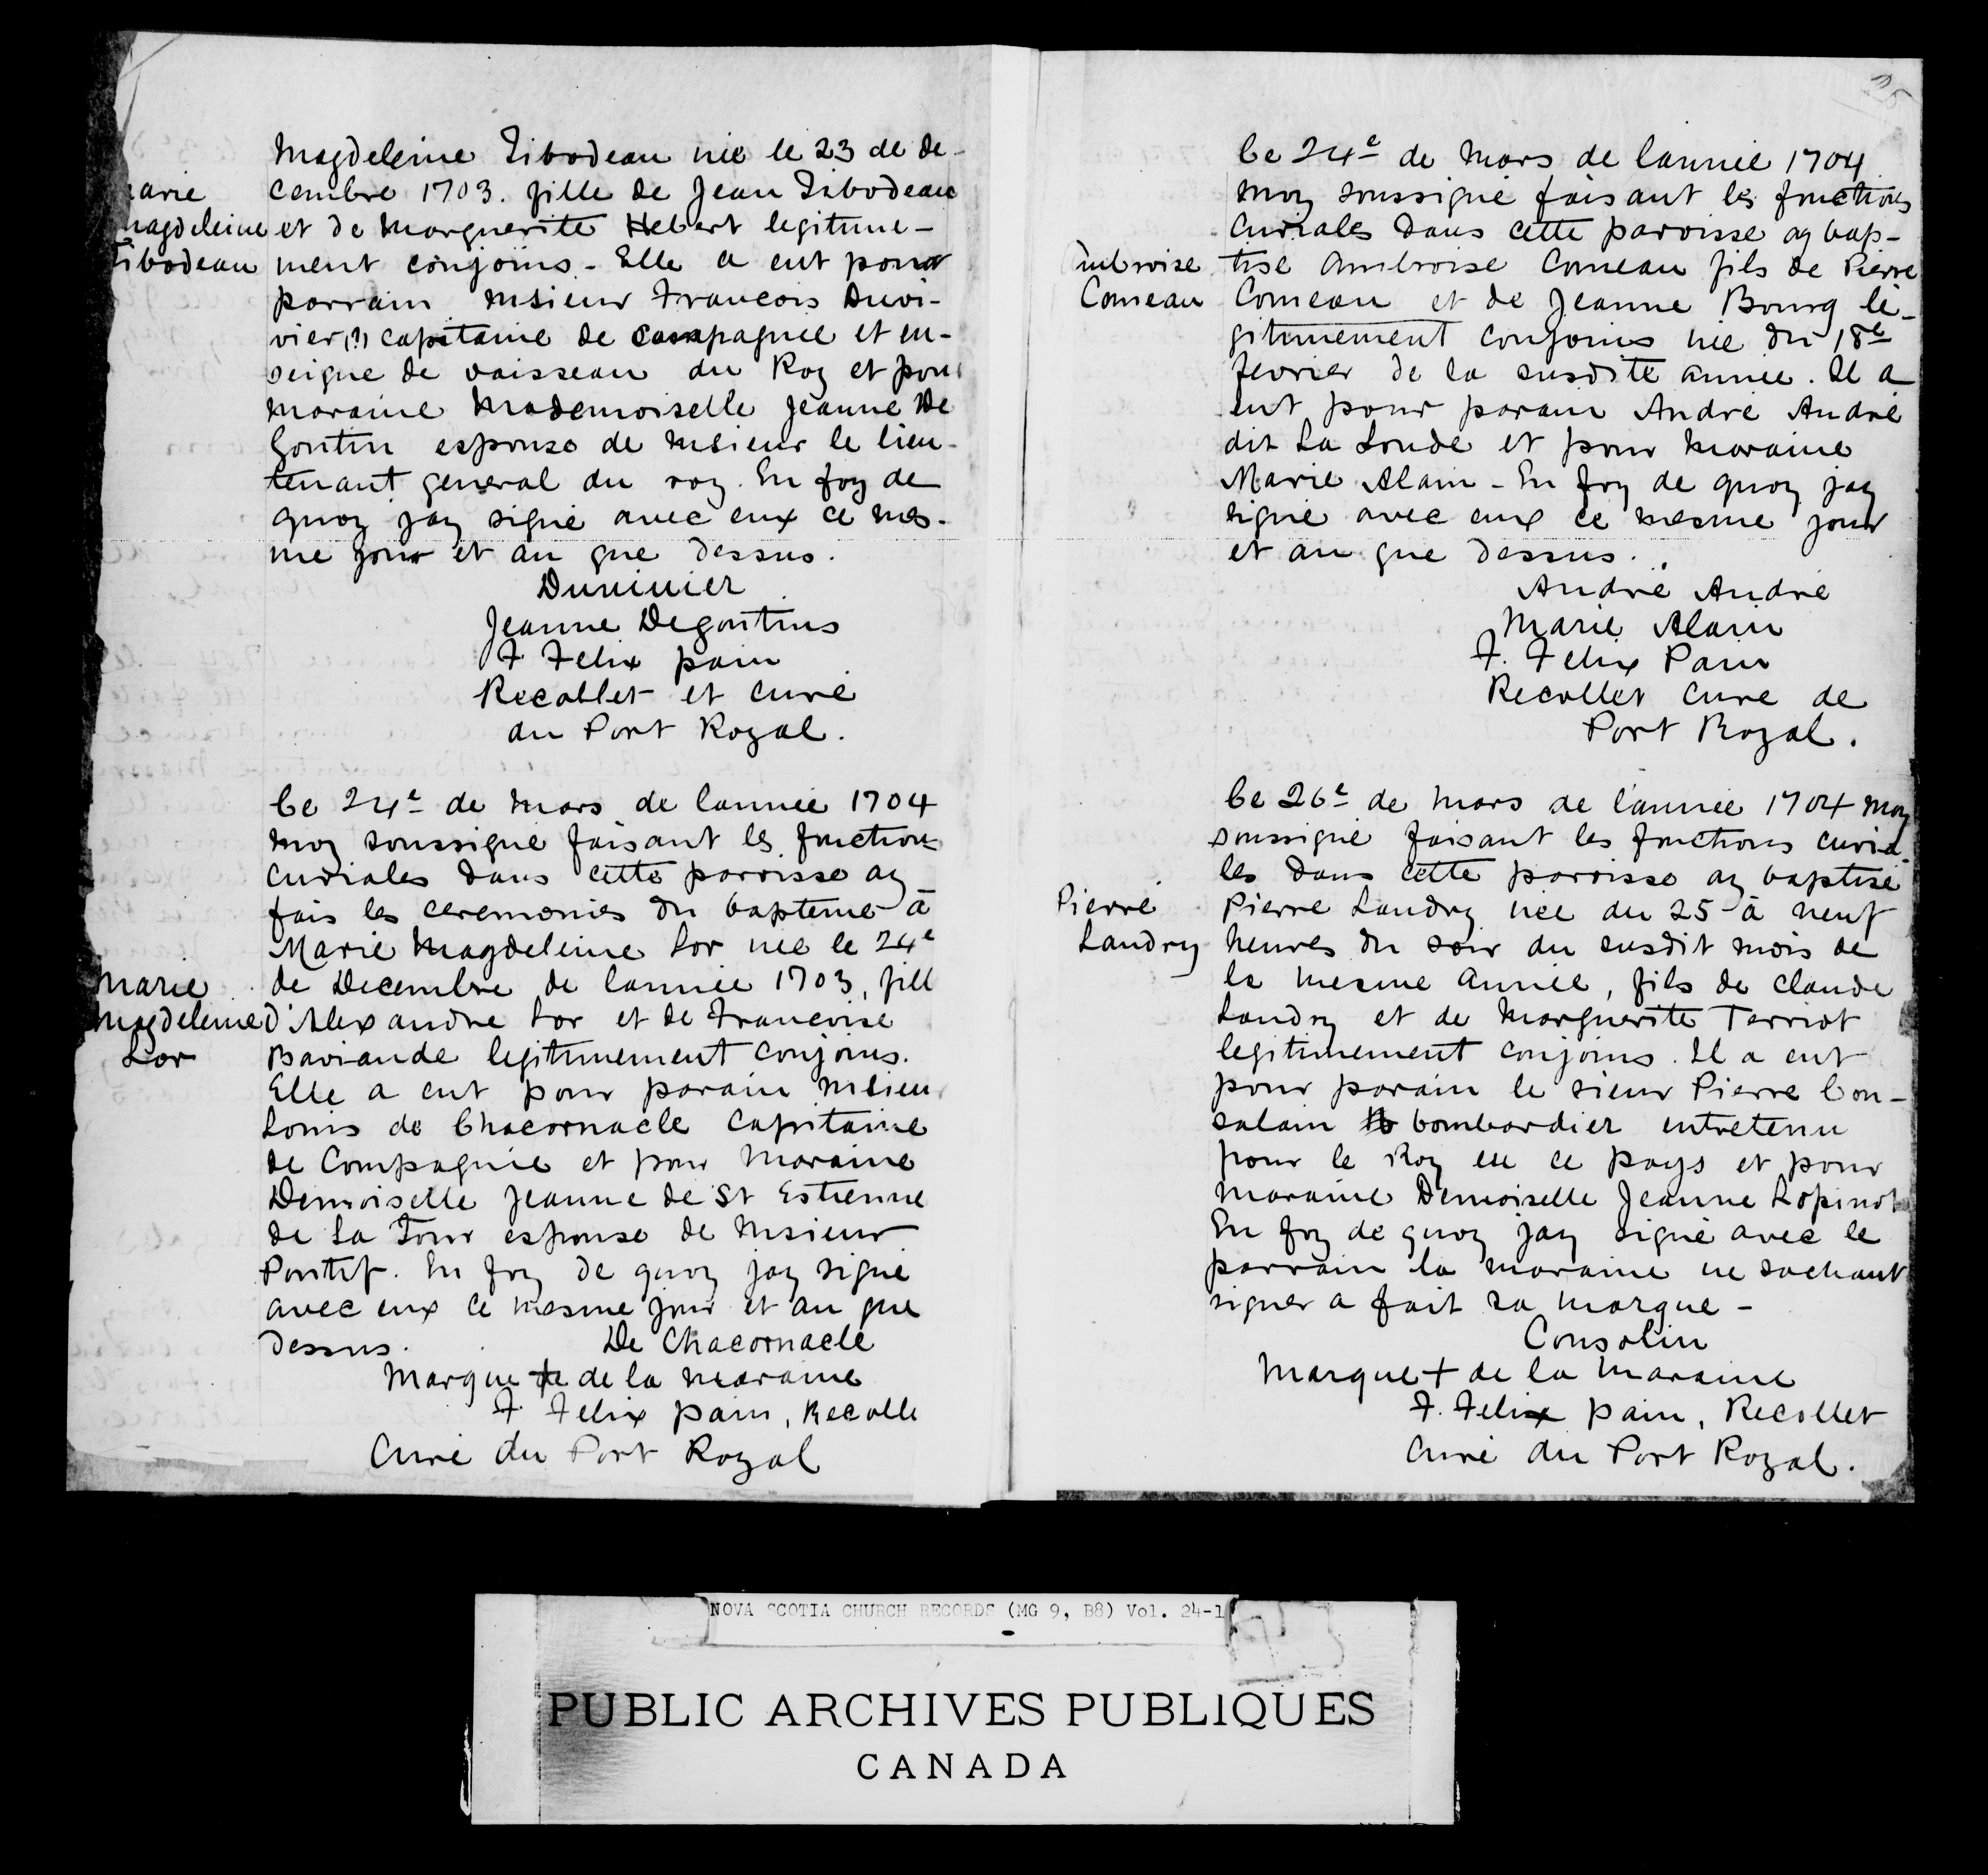 Magdeleine Tibodeau née le 23 de de-
cembre 1703. fille de Jean Tibodeau
et de Marguerite Hebert legitime-
ment conjoins - Elle a eut pour
parrain Msieur Francois Duvi-
vier (?) capitaine de compagnee et en-
seigne de vaisseau du Roy et pour
maraine Mademoiselle Jeanne De
Goutin espouse de Msieur le lieu-
tenant general du roy. En foy de
quoy jay signé avec eux ce mes-
me jour et an que dessus.
Duvivier
Jeanne Degoutins
F Felix pain
Recollet et curé
du Port Royal.
Marie
Magdeleine
Tibodeau
Le 24e de Mars de lannée 1704
moy soussigné faisant les fonction
curiales dans cette parroisse ay
fais les ceremonies du bapteme à
Marie Magdeleine Lor née le 24e
de Decembre de lannée 1703, fill
d'Alexandre Lor et de Francoise
Baviande legitimement conjoins.
Elle a eut pour parain Msieu
Louis de Chacornacle Capitaine
de Compagnie et pour Maraine
Demoiselle Jeanne de St Estienne
de La Tour espouse de Msieur
Pontif. En foy de quoy jay signé
avec eux ce mesme jour et an que
dessus. De Chacornacle
Marque + de la maraine
F. Felix pain, Recolle
Curé du Port Royal
Marie
Magdeleine
Lor
25
Le 24e de Mars de lannée 1704
moy soussigné faisant les fonctions
curiales dans cette paroisse ay bap-
tisé Ambroise Comeau fils de Pierre
Comeau et de Jeanne Bourg lé-
gitimement conjoins née du 18e
fevrier de la susdite année. Il a
eut pour parain André André
dit La Londe et pour maraine
Marie Alain - En foy de quoy jay
signé avec eux ce mesme jour
et an que dessus.
André André
Marie Alain
F. Felix Pain
Recollet Curé de
Port Royal.
Ambroise
Comeau
Le 26e de Mars de l'année 1704 moy
soussigné faisant les fonctions curia-
les dans cette parroisse ay baptisé
Pierre Landry née du 25 à neuf
heures du soir du susdit mois de
la mesme année, fils de Claude
Landry et de Marguerite Terriot
legitimement conjoins. Il a eut
pour parain le sieur Pierre Con-
salain bombardier entretenu
pour le Roy en ce pays et pour
maraine Demoiselle Jeanne Lopinot
En foy de quoy jay signé avec le
parrain la maraine ne sachant
signer a fait sa marque -
Consolin
Marque + de la maraine
F. Felix pain, Recollet
Curé du Port Royal.
Pierre
Landry
NOVA SCOTIA CHURCH RECORDS (MG 9, B8) Vol. 24-1
PUBLIC ARCHIVES PUBLIQUES
CANADA